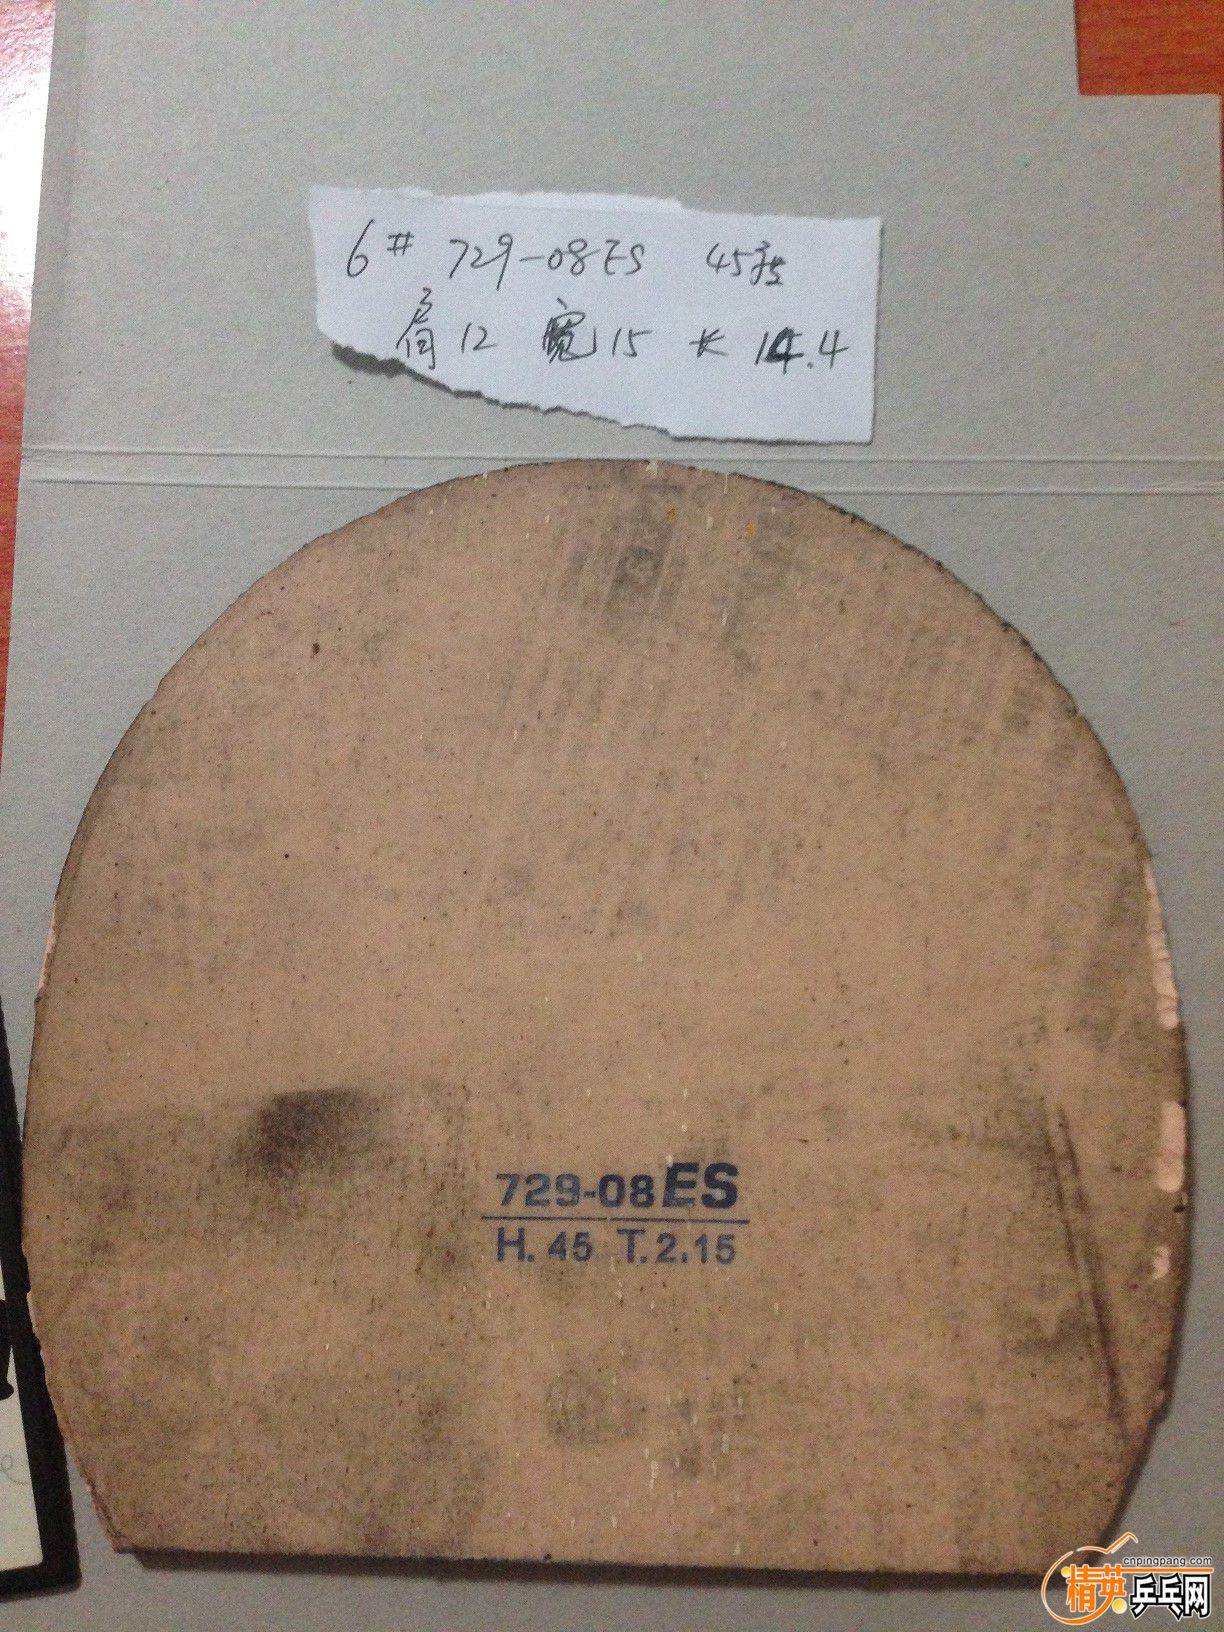 6# 729-08ES 45度
肩12 宽15 长14.4
729-08ES
H.45 T.2.15
cnpingpang.com
精英乒乓网